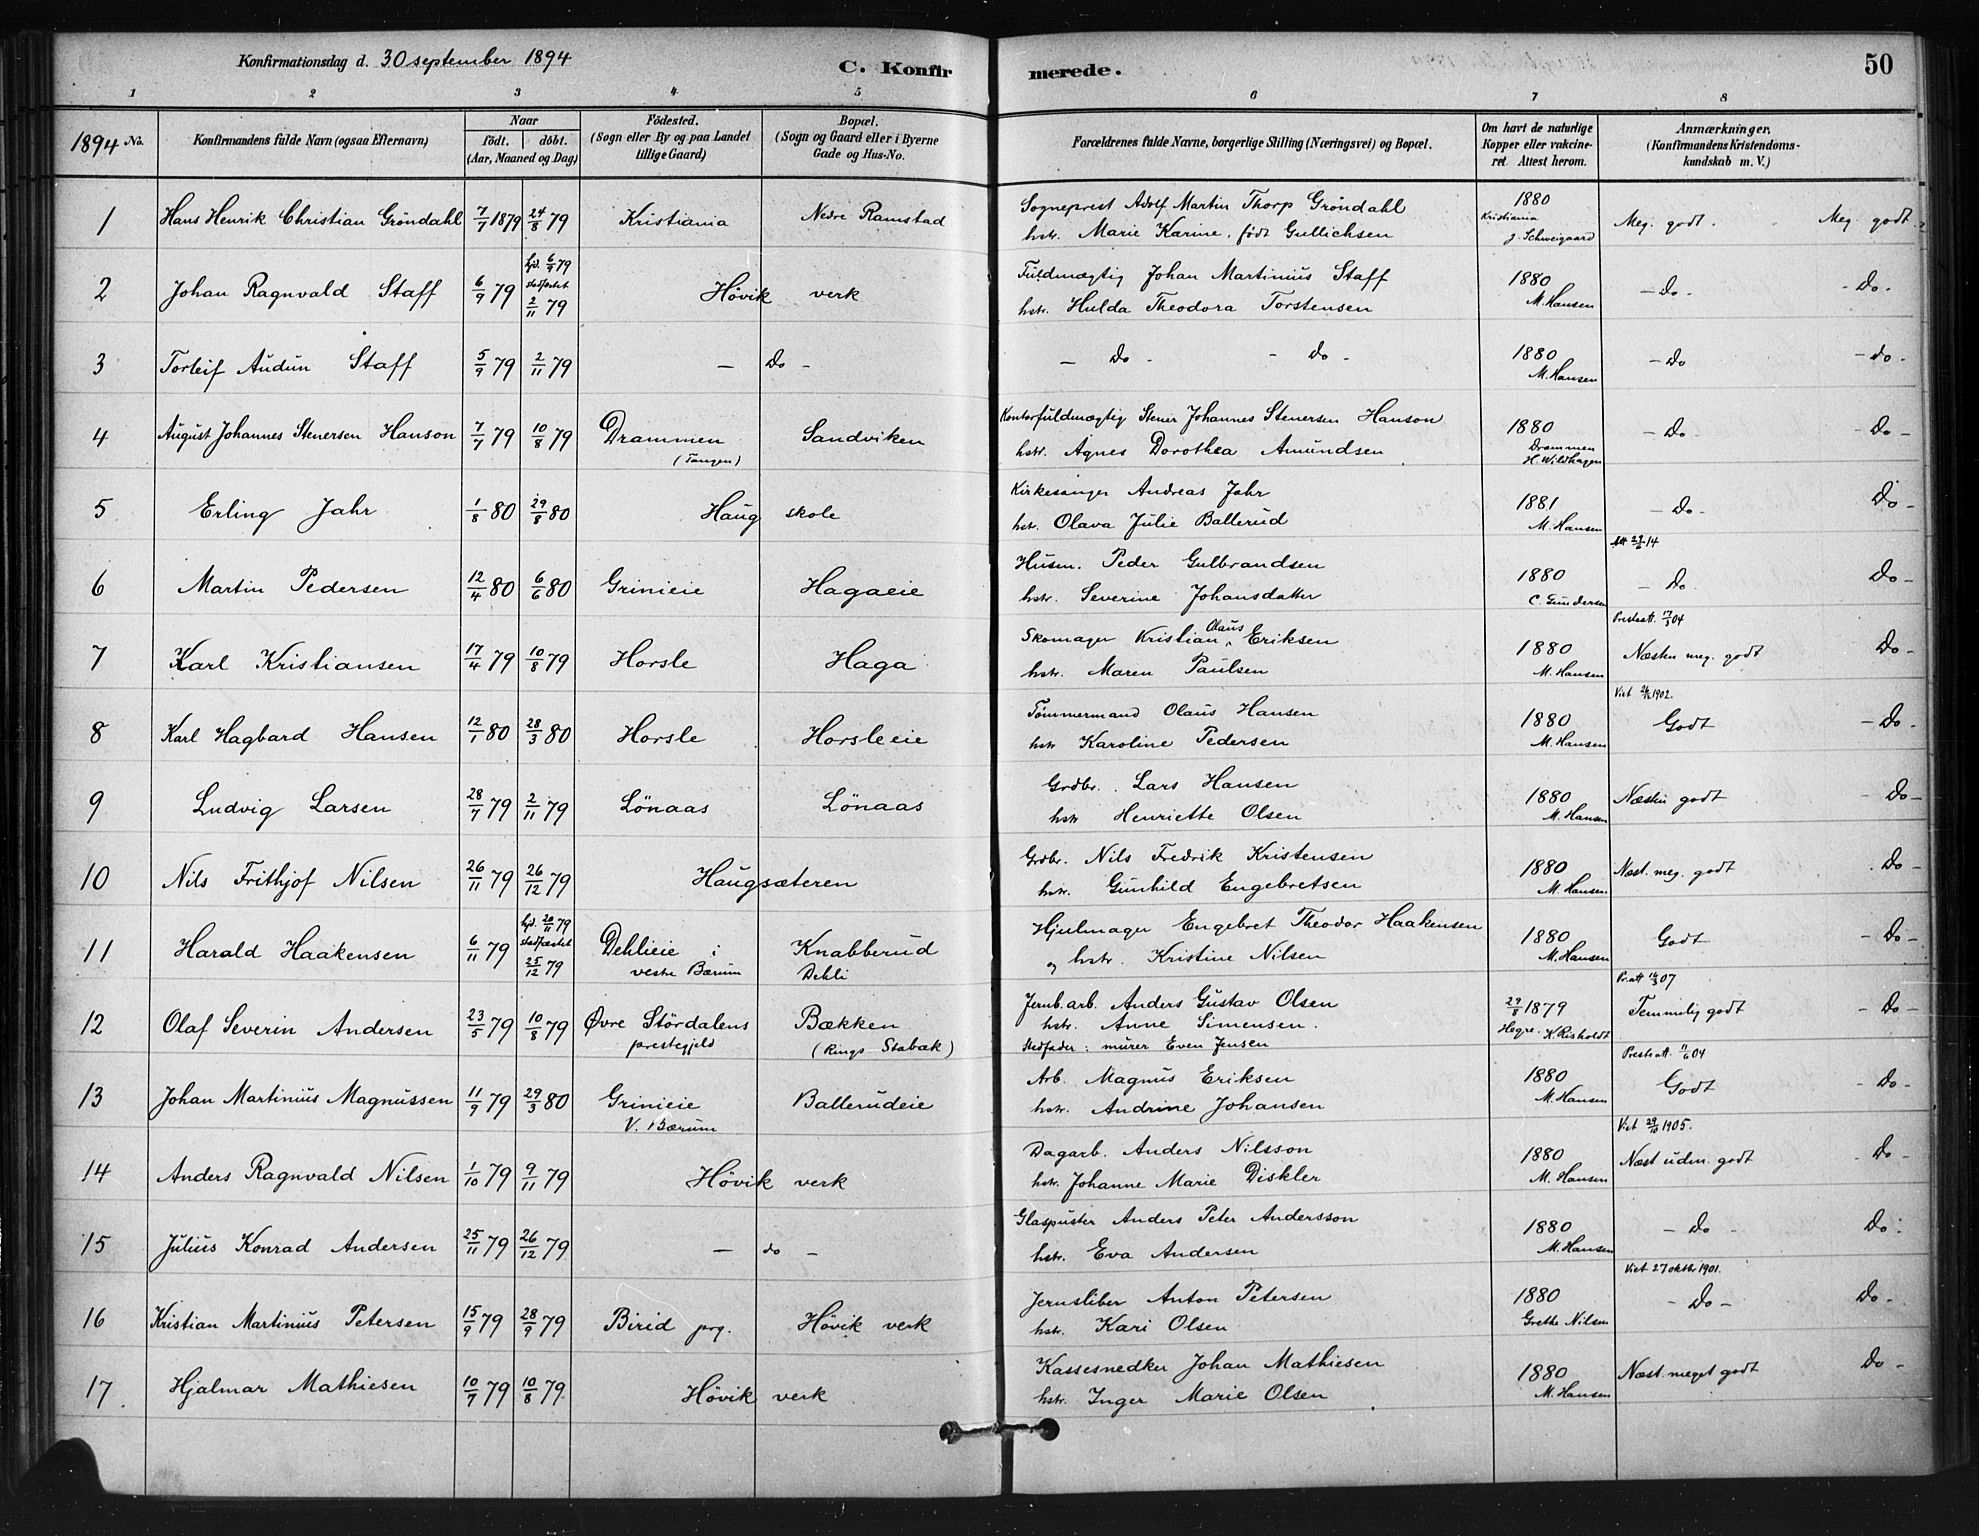 Konfirmationsdag d. 30 september 1894
C. Konfir merede.
50
1 2 3 4 5 6 7 8
1894 No.
Konfirmandens fulde Navn (ogsaa Efternavn)
Naar
födt. döbt.
(Aar, Maaned og Dag)
Födested.
(Sogn eller By og paa Landet
tillige Gaard)
Bopæl.
(Sogn og Gaard eller i Byerne
Gade og Hus-No.
Forældrenes fulde Navne, borgerlige Stilling (Næringsvei) og Bopæl.
Om havt de naturlige
Kopper eller vakcine-
ret. Attest herom.
Anmærkninger.
(Konfirmandens Kristendoms-
kundskab m. V.)
1 Hans Henrik Christian Gröndahl 7/7 1879 24/8 79 Kristiania Nedre Ramstad
Sogneprest Adolf Martin Thorp Gröndahl
hstr. Marie Karine, født Gullichsen
1880
Kristiania
J. Schweigaard
Meg. godt. Meg. godt.
2 Johan Ragnvald Staff 6/9 79 hjd. 6/9 79
stadfæstet
2/11 79
Hövik verk
Fuldmægtig Johan Martinius Staff
hstr. Hulda Theodora Torstensen
1880
M. Hansen
- Do - - Do -
3 Torleif Audun Staff 5/9 79 2/11 79 - Do -
- Do - - Do -
1880
M. Hansen
- Do - do -
4 August Johannes Stenersen Hanson 7/7 79 10/8 79 Drammen
(Tangen)
Sandviken
Kontorfuldmægtig Stener Johannes Stenersen Hanson
hstr. Agnes Dorothea Amundsen
1880
Drammen
H. Wildhagen
- Do - - Do -
5 Erling Jahr 1/8 80 29/8 80 Haug skole
Kirkesanger Andreas Jahr
hstr. Olava Julie Ballerud
1881
M. Hansen
- Do - Do -
6 Martin Pedersen 12/4 80 6/6 80 Grinieie Hagaeie
Husm. Peder Gulbrandsen
hstr. Severine Johansdatter
1880
C. Gundersen
- Do - Do -
7 Karl Kristiansen 17/4 79 10/8 79 Horsle Haga
Skomager Kristian Olaus Eriksen
hstr. Maren Paulsen
1880
M. Hansen
Prestatt. 17/3 04
Næsten meg. godt Do -
8 Karl Hagbard Hansen 12/1 80 28/3 80 Horsle Horsleeie
Tömmermand Olaus Hansen
hstr Karoline Pedersen
1880
M. Hansen
Godt - Do -
9 Ludvig Larsen 28/7 79 2/11 79 Lönaas Lönaas
Grdbr. Lars Hansen
hstr Henriette Olsen
1880
M. Hansen
Næsten godt - Do -
10 Nils Frithjof Nilsen 26/11 79 26/12 79 Haugsæteren
Grdbr. Nils Fredrik Kristensen
hstr. Gunhild Engebretsen
1880
M. Hansen
Næst. meg. godt Do -
11 Harald Haakensen 6/11 79 hjd. 20/11 79
stadfæstet
25/12 79
Dehlieie i
vestre Bærum
Knabberud
Dehli
Hjulmager Engebret Theodor Haakensen
og hstr. Kristine Nilsen
1880
M. Hansen
Godt - Do -
12 Olaf Severin Andersen 23/5 79 10/8 79 Övre Stördalens
prestegjeld
Bækken
(Rings Stabæk)
Jernb. arb. Anders Gustav Olsen
hstr. Anne Simensen.
Stedfader: murer Even Jensen
29/8 1879
Hegre. K. Risholdt
Temmelig godt - Do -
13 Johan Martinius Magnussen 11/9 79 29/3 80 Grinieie
V. Bærum
Ballerudeie
Arb. Magnus Eriksen
hstr. Andrine Johansen
1880
M. Hansen
Prestatt. 11/6 04
Godt - Do -
14 Anders Ragnvald Nilsen 1/10 79 9/11 79 Hövik verk
Dagarb. Anders Nilsson
hstr. Johanne Marie Diskler
1880
M. Hansen
Viet 29/10 1905.
Næst udm. godt Do -
15 Julius Konrad Andersen 25/11 79 26/12 79 - do -
Glaspuster Anders Peter Andersson
hstr. Eva Andersen
1880
M. Hansen
- Do - Do -
16 Kristian Martinius Petersen 15/9 79 28/9 79 Birid prg. Hövik verk
Jernsliber Anton Petersen
hstr. Kari Olsen
1880
Grethe Nilsen
Viet 27 oktbr 1901.
- Do - Do -
17 Hjalmar Mathiesen 10/7 79 10/8 79 Hövik verk
Kassesnedker Johan Mathiesen
hstr. Inger Marie Olsen
1880
M. Hansen
Næst. meget godt Do -